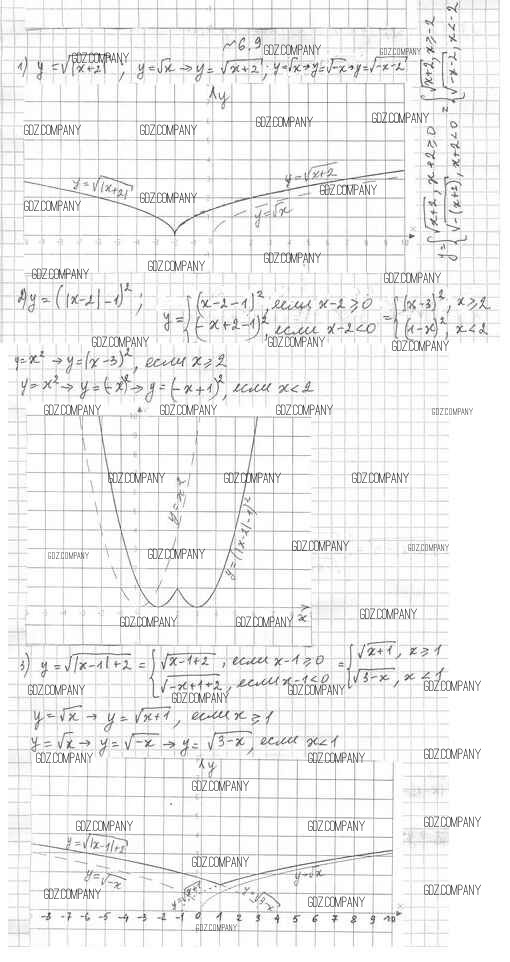 ~6.9
1) y=√|x+2| ; y=√x → y=√x+2 ; y=√x → y=√-x → y=√-x-2
y = { √x+2, x+2≥0 = { √x+2, x≥-2
√-(x+2), x+2<0 { √-x-2, x<-2
y
y=√|x+2|
y=√x+2
y=√x
x
2) y=(|x-2|-1)² ; y= { (x-2-1)², если x-2≥0 = { (x-3)², x≥2
(-x+2-1)², если x-2<0 { (1-x)², x<2
y=x² → y=(x-3)², если x≥2
y=x² → y=(-x)² → y=(-x+1)², если x<2
y=x²
y=(|x-2|-1)²
x
3) y=√|x-1|+2 = { √x-1+2, если x-1≥0 = { √x+1, x≥1
√-x+1+2, если x-1<0 { √3-x, x<1
y=√x → y=√x+1, если x≥1
y=√x → y=√-x → y=√3-x, если x<1
y
y=√|x-1|+2
y=√-x
y=√x+1
y=√3-x
y=√x
-8 -7 -6 -5 -4 -3 -2 -1 0 1 2 3 4 5 6 7 8 9 10
x
GDZ.COMPANY